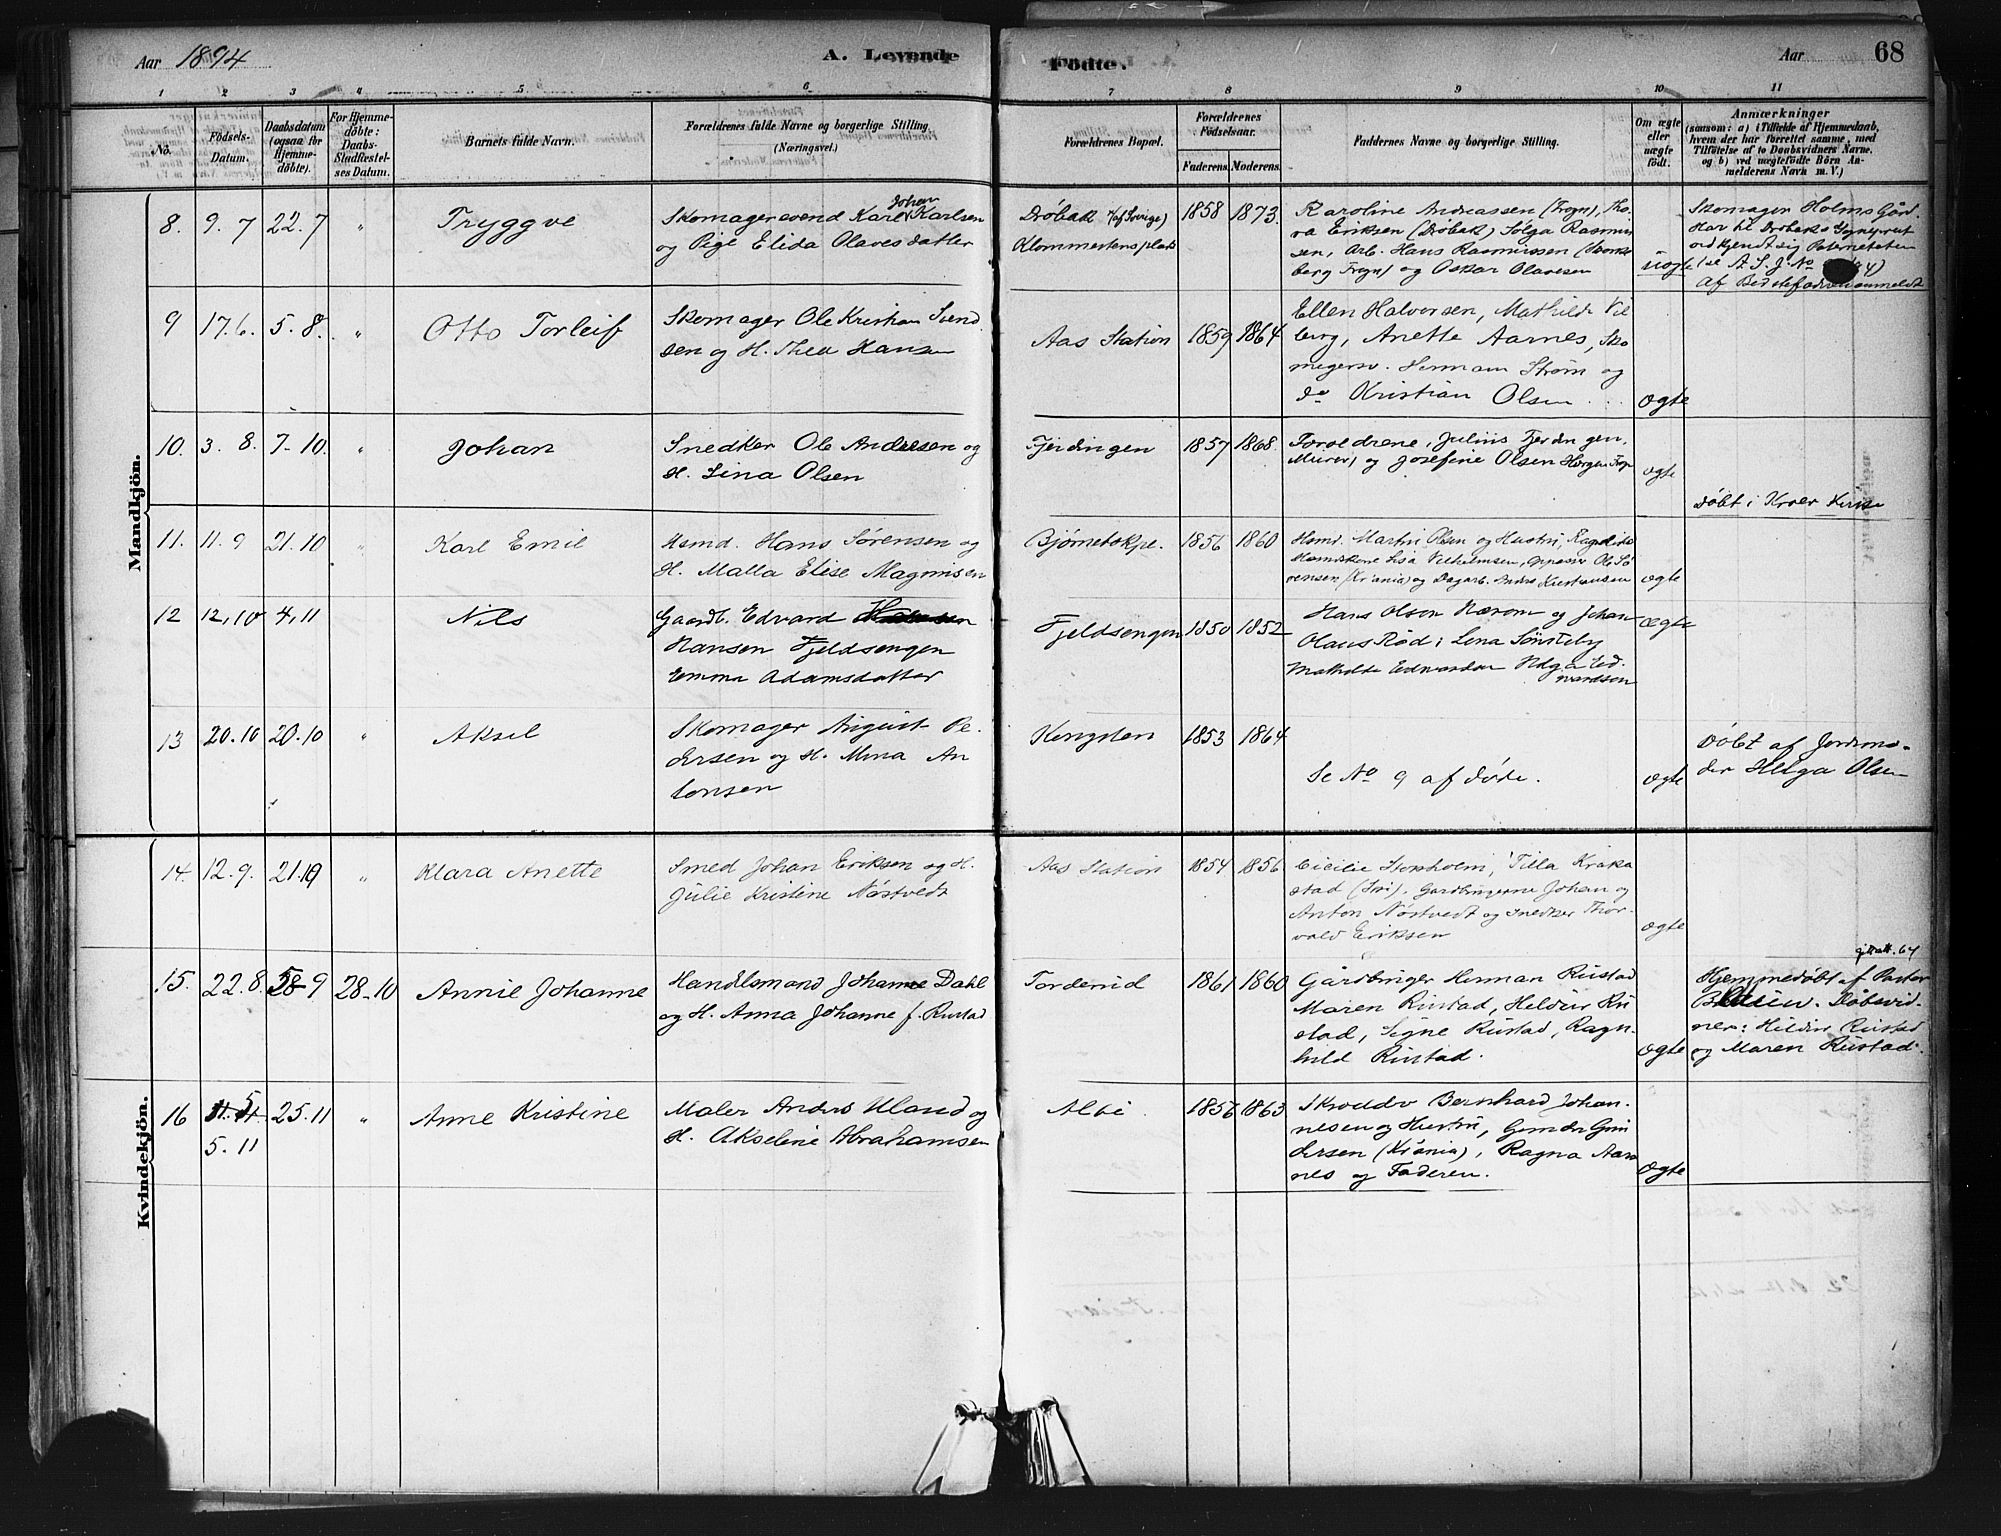 Aar 1894
A. Levende
Fødte.
Aar 68
1 2 3 4 5 6 7 8 9 10 11
No.
Födsels-
Datum.
Daabsdatum
(ogsaa for
Hjemme-
döbte).
For Hjemme-
döbte:
Daabs-
Stadfæstel-
ses Datum.
Barnets fulde Navn.
Forældrenes fulde Navne og borgerlige Stilling.
(Næringsvei.)
Forældrenes Bopæl.
Forældrenes
Födselsaar.
Faderens. Moderens.
Faddernes Navne og borgerlige Stilling.
Om ægte
eller
uægte
födt.
Anmærkninger
(saasom: a) i Tilfælde af Hjemmedaab,
hvem der har forrettet samme, med
Tilföielse af to Daabsvidners Navne,
og b) ved uægtefödte Börn An-
melderens Navn m. V.)
Mandkjön.
8. 9. 7 22. 7 " Tryggve
Skomagersvend Karl Johan Karlsen
og Pige Elida Olavesdatter
Drøbak (af Sverige)
Klommertensplads
1858 1873.
Karoline Andreassen (Frogn), Tho-
ra Eriksen (Drøbak) Solga Rasmus
sen, Arb. Hans Rasmussen
berg Frogn) og Oskar Olavesen
uægte
Skomager Holms Gård.
Har til Drøbaks Sognepræst
erkjendt sig Paterniteten
(se A. S. J. No
af Bedstefaderen anmeldt
9 17. 6. 5. 8. " Otto Torleif
Skomager Ole Kristian Svend
sen og H. Thea Hansen
Aas Station 1859 1864
Ellen Halvorsen, Mathilde Vil
berg, Anette Aarnes, Sko
magersv. Herman Strøm og
do Kristian Olsen
ægte
10. 3. 8. 7. 10. " Johan
Snedker Ole Andersen og
H. Lina Olsen
Fjerdingen 1857 1868.
Forældrene, Julius Fjerdingen,
Murer, og Josefine Olsen
ægte
Døbt i Kroer Kirke
11. 11. 9 21. 10 " Karl Emil
Husmd. Hans Sørensen og
H. Malla Elise Magnusen
Bjørnebekpl. 1856 1860
Husmd. Martin Olsen og Hustru, Ragnhild
Lisa Vilhelmsen, Opasser Ole Sø
rensen (Kr'ania) og Dagarb. Anders Kristiansen
ægte
12 12, 10 4, 11 Nils
Gaardb. Edvard
Hansen Fjeldsengen
Emma Adamsdatter
Fjeldsengen 1850 1852
Hans Olson Nærom og Johan
Olaus Rød; Lena Sønsteby
Mathilde Edvardsen Helga Ed-
vardsen
ægte
13 20. 10 20. 10 " Aksel
Skomager August Pe-
dersen og H. Mina An
tonsen
Kongsten 1853 1864
Se No 9 af døde.
ægte
Døbt af Jordmo-
der Helga Olsen
Kvindekjön.
14. 12. 9. 21. 10 " Klara Anette
Smed Johan Eriksen og H.
Julie Kristine Nøstvedt
Aas Station 1854 1856
Cicilie Storholm, Tilla Kraka
stad (Ski), Gardbrugerne Johan og
Anton Nøstvedt og Snedker Thor-
vald Eriksen
ægte
15. 22. 8. 28. 9 28. 10 Annie Johanne
Handelsmand Johannes Dahl
og H. Anna Johanne f. Rustad
Torderud 1861 1860
Gårdbruger Herman Rustad
Maren Rustad, Heldur Ru
stad, Signe Rustad, Ragn-
hild Rustad.
ægte
Hjemmedøbt af Pastor
Døbsvid-
ner: Hildur Rustad
og Maren Rustad.
16 5. 11 25. 11 " Anne Kristine
Maler Anders Uland og
H. Akseline Abrahamsen
Altie 1856 1863
Skrædder Bernhard Johan-
nesen og Hustru, Gunder Gun
dersen (Kr'ania), Ragna Aar
nes og Faderen.
ægte